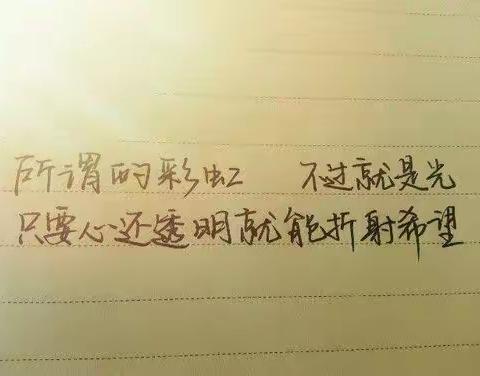 所谓的彩虹 不过就是光
只要心还透明就能折射希望